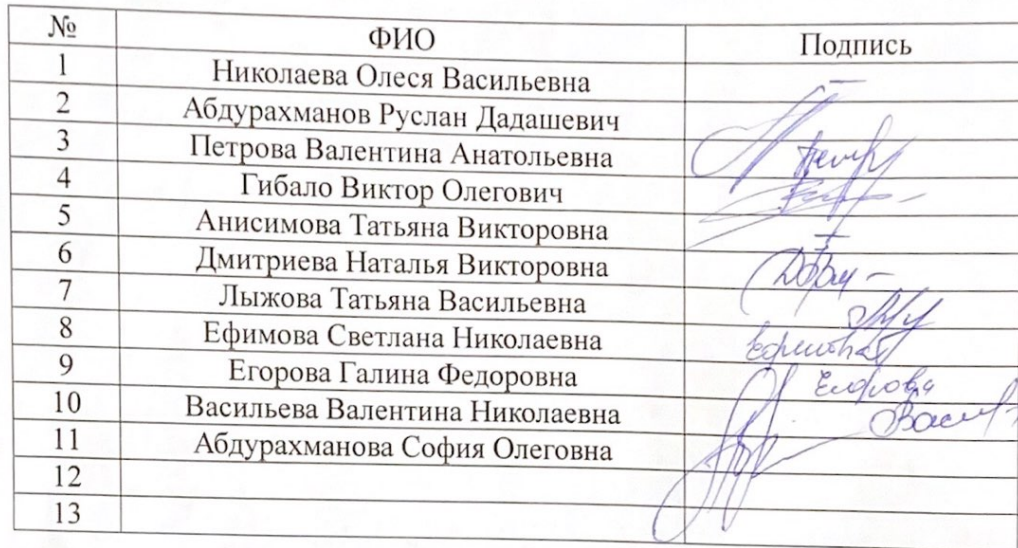 № ФИО Подпись
1 Николаева Олеся Васильевна –
2 Абдурахманов Руслан Дадашевич
3 Петрова Валентина Анатольевна Петр
4 Гибало Виктор Олегович
5 Анисимова Татьяна Викторовна –
6 Дмитриева Наталья Викторовна
7 Лыжова Татьяна Васильевна
8 Ефимова Светлана Николаевна
9 Егорова Галина Федоровна Егорова
10 Васильева Валентина Николаевна Васил
11 Абдурахманова София Олеговна
12
13